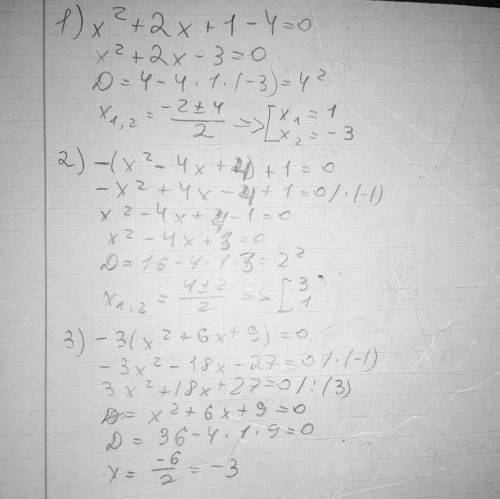 1) x² + 2x + 1 - 4 = 0
x² + 2x - 3 = 0
D = 4 - 4 · 1 · (-3) = 4²
x₁,₂ = (-2 ± 4)/2 => [x₁ = 1 x₂ = -3
2) -(x² - 4x + 4) + 1 = 0
-x² + 4x - 4 + 1 = 0 / · (-1)
x² - 4x + 4 - 1 = 0
x² - 4x + 3 = 0
D = 16 - 4 · 1 · 3 = 2²
x₁,₂ = (4 ± 2)/2 => [3 1
3) -3(x² + 6x + 9) = 0
-3x² - 18x - 27 = 0 / · (-1)
3x² + 18x + 27 = 0 / : (3)
x² + 6x + 9 = 0
D = 36 - 4 · 1 · 9 = 0
x = -6/2 = -3